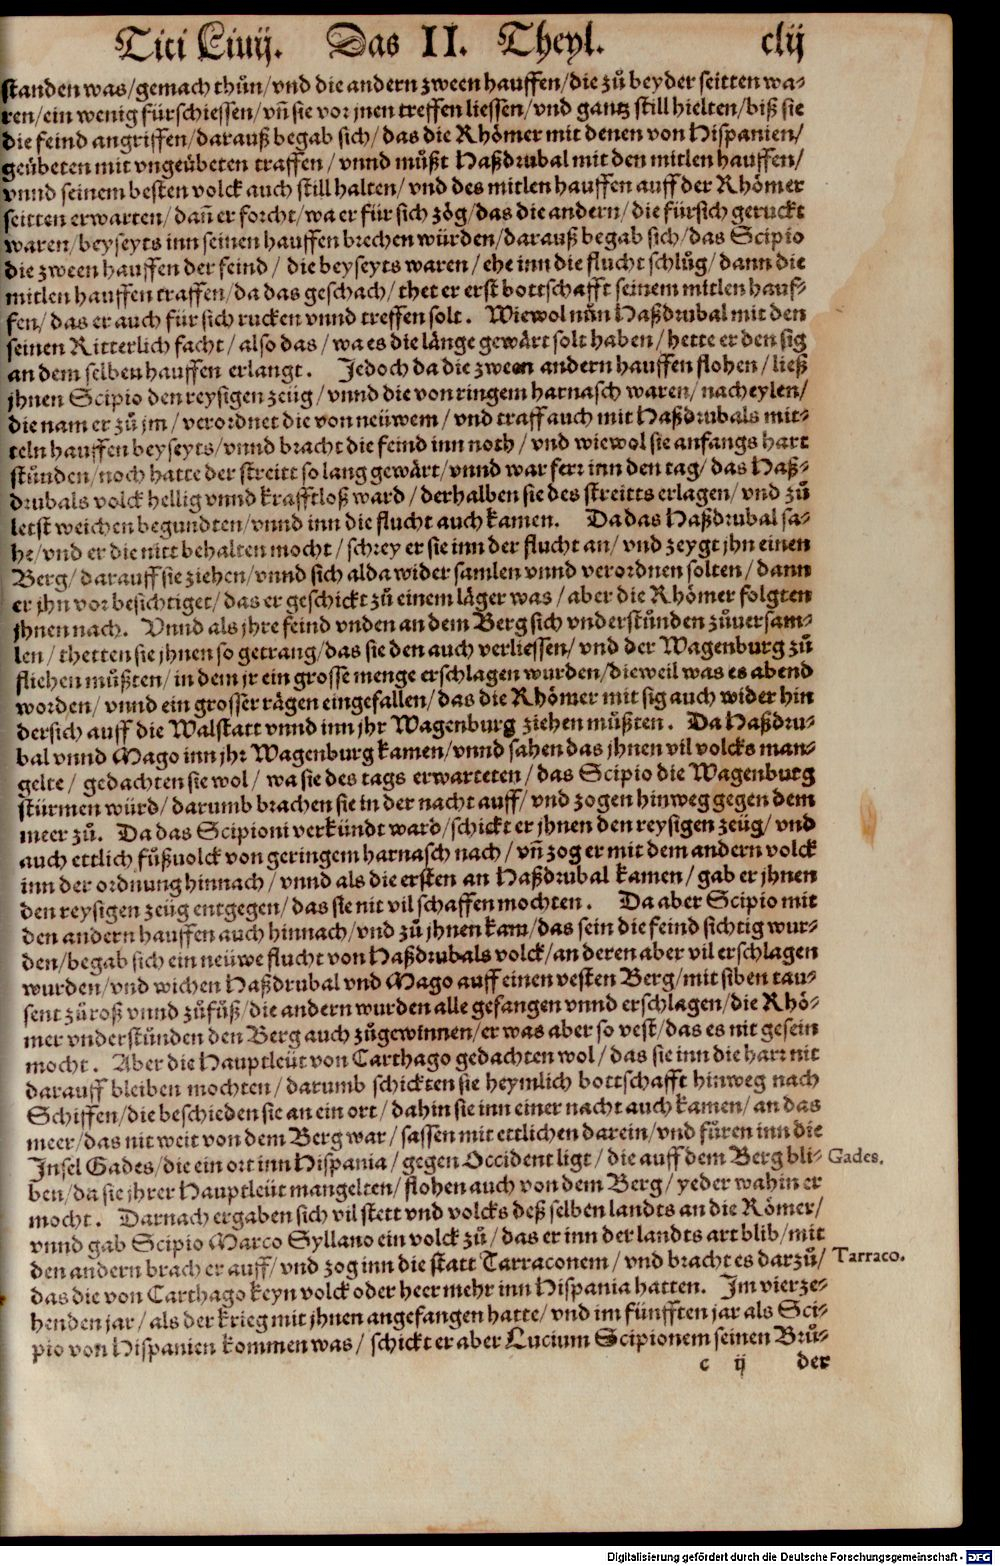 Titi Liuij. Das II. Theyl. clij
standen was/gemach thůn/vnd die andern zween hauffen/die zů beyder seitten wa-
ren/ein wenig fürschiessen/vñ sie vor jnen treffen liessen/vnd gantz still hielten/biß sie
die feind angriffen/darauß begab sich/das die Rhömer mit denen von Hispanien/
geübeten mit vngeübeten traffen/vnnd můßt Haßdrubal mit den mitlen hauffen/
vnnd seinem besten volck auch still halten/vnd des mitlen hauffen auff der Rhömer
seitten erwarten/dañ er forcht/wa er für sich zög/das die andern/die fürsich geruckt
waren/beyseyts inn seinen hauffen brechen würden/darauß begab sich/das Scipio
die zween hauffen der feind/die beyseyts waren/ehe inn die flucht schlůg/dann die
mitlen hauffen traffen/da das geschach/thet er erst bottschafft seinem mitlen hauf-
fen/das er auch für sich rucken vnnd treffen solt. Wiewol nůn Haßdrubal mit den
seinen Ritterlich facht/also das/wa es die länge gewärt solt haben/hette er den sig
an dem selben hauffen erlangt. Jedoch da die zween andern hauffen flohen/ließ
jhnen Scipio den reysigen zeüg/vnnd die von ringem harnasch waren/nacheylen/
die nam er zů jm/verordnet die von neüwem/vnd traff auch mit Haßdrubals mit-
teln hauffen beyseyts/vnnd bracht die feind inn noth/vnd wiewol sie anfangs hart
stůnden/noch hatte der streitt so lang gewärt/vnnd war ferr inn den tag/das Haß-
drubals volck hellig vnnd krafftloß ward/derhalben sie des streitts erlagen/vnd zů
letst weichen begundten/vnnd inn die flucht auch kamen. Da das Haßdrubal sa-
he/vnd er die nitt behalten mocht/schrey er sie inn der flucht an/vnd zeygt jhn einen
Berg/darauff sie ziehen/vnnd sich alda wider samlen vnnd verordnen solten/dann
er jhn vor besichtiget/das er geschickt zů einem läger was/aber die Rhömer folgten
jhnen nach. Vnnd als jhre feind vnden an dem Berg sich vnderstůnden zůuersam-
len/thetten sie jhnen so getrang/das sie den auch verliessen/vnd der Wagenburg zů
fliehen můßten/in dem jr ein grosse menge erschlagen wurden/dieweil was es abend
worden/vnnd ein grosser rägen eingefallen/das die Rhömer mit sig auch wider hin
dersich auff die Walstatt vnnd inn jhr Wagenburg ziehen můßten. Da Haßdru-
bal vnnd Mago inn jhr Wagenburg kamen/vnnd sahen das jhnen vil volcks man-
gelte/gedachten sie wol/wa sie des tags erwarteten/das Scipio die Wagenburg
stürmen würd/darumb brachen sie in der nacht auff/vnd zogen hinweg gegen dem
meer zů. Da das Scipioni verkündt ward/schickt er jhnen den reysigen zeüg/vnd
auch ettlich fůßuolck von geringem harnasch nach/vñ zog er mit dem andern volck
inn der ordnung hinnach/vnnd als die ersten an Haßdrubal kamen/gab er jhnen
den reysigen zeüg entgegen/das sie nit vil schaffen mochten. Da aber Scipio mit
den andern hauffen auch hinnach/vnd zů jhnen kam/das sein die feind sichtig wur-
den/begab sich ein neüwe flucht von Haßdrubals volck/an deren aber vil erschlagen
wurden/vnd wichen Haßdrubal vnd Mago auff einen vesten Berg/mit siben tau-
sent zů roß vnnd zů fůß/die andern wurden alle gefangen vnnd erschlagen/die Rhö-
mer vnderstůnden den Berg auch zůgewinnen/er was aber so vest/das es nit gesein
mocht. Aber die Hauptleüt von Carthago gedachten wol/das sie inn die harr nit
darauff bleiben mochten/darumb schickten sie heymlich bottschafft hinweg nach
Schiffen/die beschieden sie an ein ort/dahin sie inn einer nacht auch kamen/an das
meer/das nit weit von dem Berg war/sassen mit ettlichen darein/vnd fůren inn die
Insel Gades/die ein ort inn Hispania/gegen Occident ligt/die auff dem Berg bli- Gades.
ben/da sie jhrer Hauptleüt mangelten/flohen auch von dem Berg/yeder wahin er
mocht. Darnach ergaben sich vil stett vnd volcks deß selben landts an die Römer/
vnnd gab Scipio Marco Syllano ein volck zů/das er inn der landts art blib/mit
den andern brach er auff/vnd zog inn die statt Tarraconem/vnd bracht es darzů/ Tarraco.
das die von Carthago keyn volck oder heer mehr inn Hispania hatten. Im vierze-
henden jar/als der krieg mit jhnen angefangen hatte/vnd im fünfften jar als Sci-
pio von Hispanien kommen was/schickt er aber Lucium Scipionem seinen Brů-
c ij der
Digitalisierung gefördert durch die Deutsche Forschungsgemeinschaft - DFG